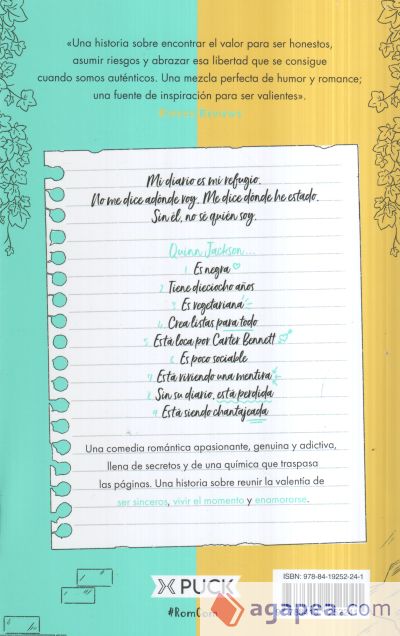 «Una historia sobre encontrar el valor para ser honestos,
asumir riesgos y abrazar esa libertad que se consigue
cuando somos auténticos. Una mezcla perfecta de humor y romance;
una fuente de inspiración para ser valientes».
Mi diario es mi refugio.
No me dice adónde voy. Me dice dónde he estado.
Sin él, no sé quién soy.
Quinn Jackson...
1. Es negra
2. Tiene dieciocho años
3. Es vegetariana
4. Crea listas para todo
5. Está loca por Carter Bennett
6. Es poco sociable
7. Está viviendo una mentira
8. Sin su diario, está perdida
9. Está siendo chantajeada
Una comedia romántica apasionante, genuina y adictiva,
llena de secretos y de una química que traspasa
las páginas. Una historia sobre reunir la valentía de
ser sinceros, vivir el momento y enamorarse.
ISBN: 978-84-19252-24-1
PUCK
#RomCom
agapea.com